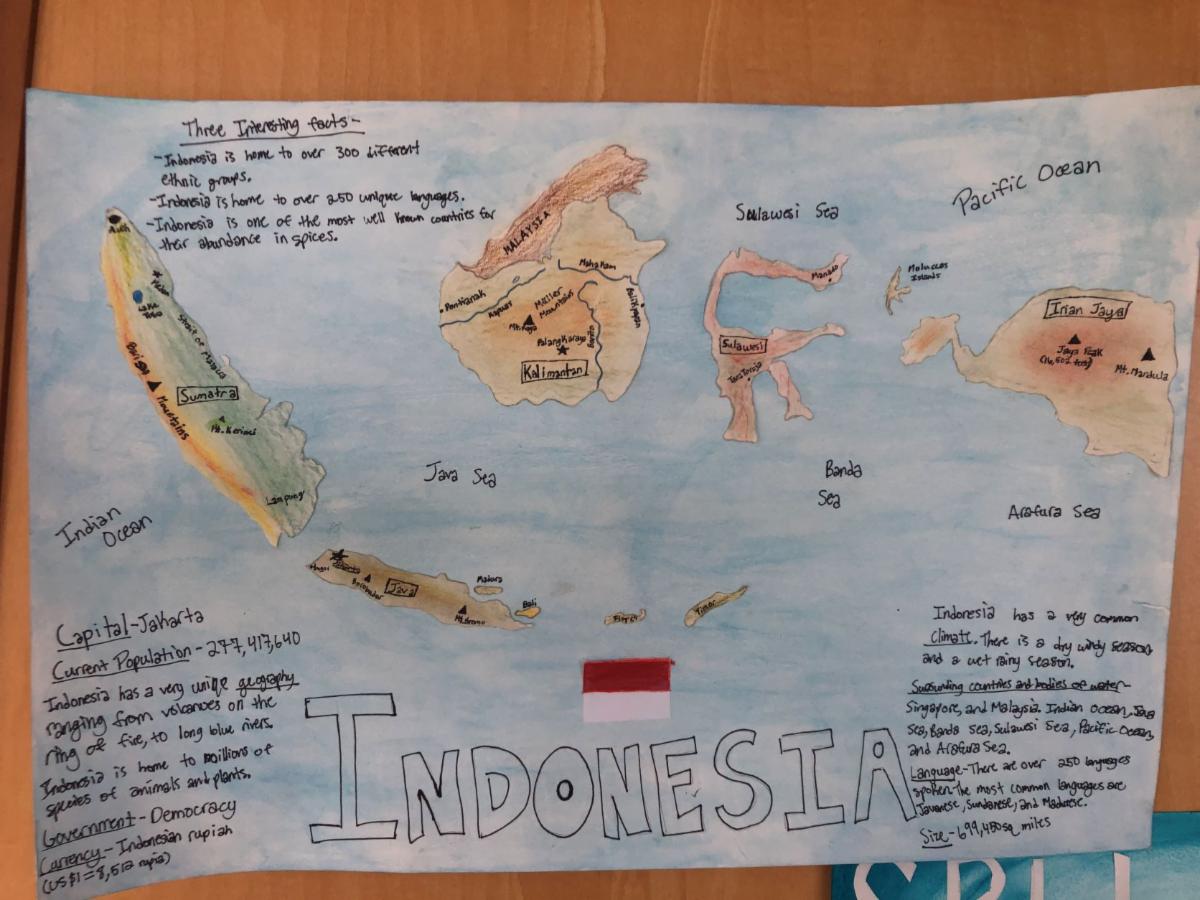 Three Interesting facts-
-Indonesia is home to over 300 different
ethnic groups.
-Indonesia is home to over 250 unique languages.
-Indonesia is one of the most well known countries for
their abundance in spices.
Pacific Ocean
Sulawesi Sea
MALAYSIA
Mahakam
Pontianak
Kapuas
Müller
Mountains
Mt. Raya
Balikpapan
Palangkaraya
Barito
Kalimantan
Manado
Sulawesi
Tana Toraja
Moluccas
Islands
Irian Jaya
Jaya Peak
(16,502 feet)
Mt. Mandala
Aceh
Medan
Lake
Toba
Strait of Malacca
Barisan
Mountains
Sumatra
Mt. Kerinci
Lampung
Java Sea
Banda
Sea
Arafura Sea
Indian
Ocean
Jakarta
Borobudur
Java
Mt. Bromo
Madura
Bali
Flores
Timor
Capital-Jakarta
Current Population - 277,417,640
Indonesia has a very uniqe geography
ranging from volcanoes on the
ring of fire, to long blue rivers.
Indonesia is home to millions of
species of animals and plants.
Government - Democracy
Currency - Indonesian rupiah
(US$1=8,512 rupia)
INDONESIA
Indonesia has a very common
climate. There is a dry windy season
and a wet rainy season.
Surrounding countries and bodies of water-
Singapore, and Malaysia. Indian Ocean, Java
Sea, Banda Sea, Sulawesi Sea, Pacific Ocean,
and Arafura Sea.
Language-There are over 250 languages
spoken. The most common languages are
Javanese, Sundanese, and Madurese.
Size-699,450sq miles